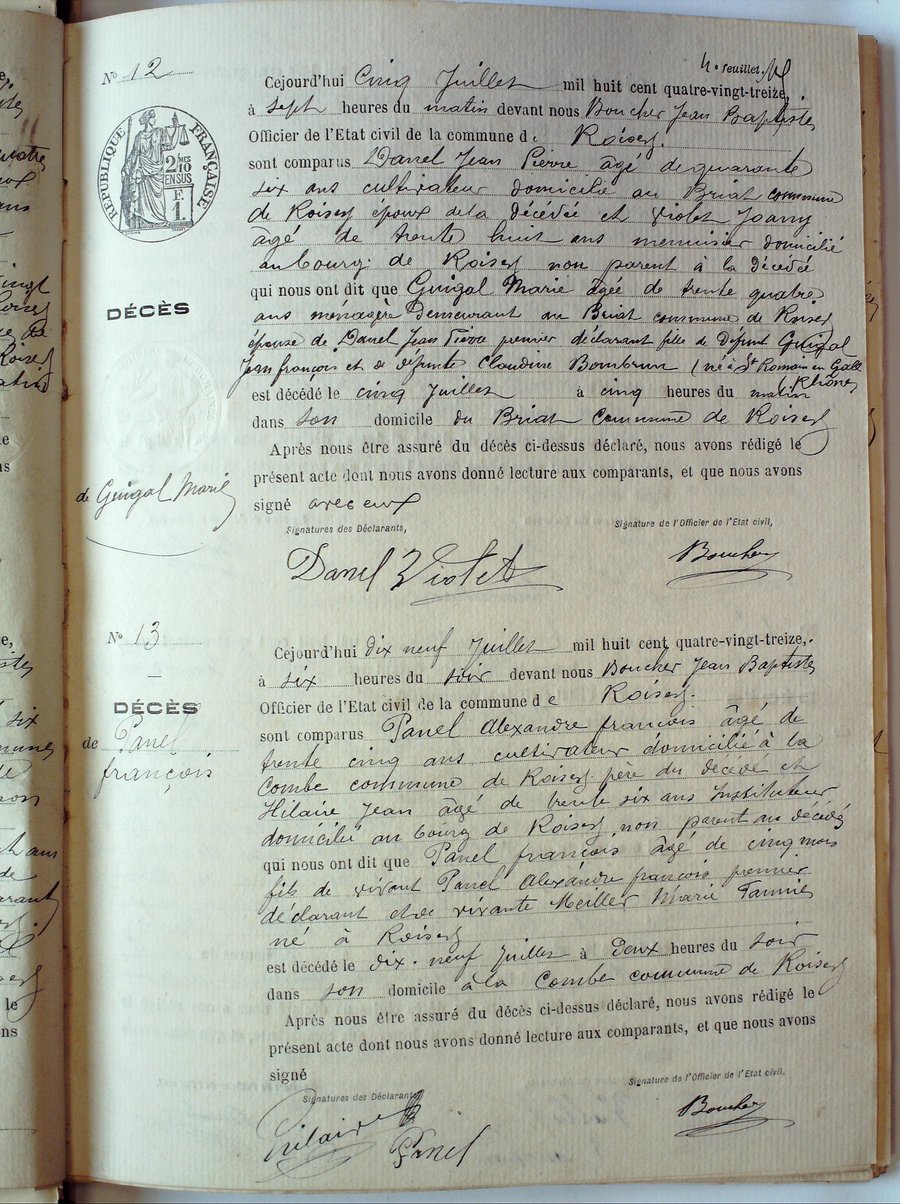 4e feuillet
N° 12
Cejourd'hui Cinq Juillet mil huit cent quatre-vingt-treize,
à sept heures du matin devant nous Boucher Jean Baptiste
Officier de l'Etat civil de la commune de Roisey
sont comparus Danel Jean Pierre âgé de quarante
six ans cultivateur domicilié au Briat commune
de Roisey époux de la décédée et Violet Joanny
âgé de trente huit ans menuisier domicilié
au bourg de Roisey non parent à la décédée
qui nous ont dit que Guigal Marie âgée de trente quatre
ans ménagère Demeurant au Briat commune de Roisey
épouse de Danel Jean Pierre premier déclarant fille de défunt Guigal
Jean françois et de défunte Claudine Bombrun (née à St Romain en Galle
Rhône)
est décédé le cinq Juillet à cinq heures du matin
dans son domicile du Briat commune de Roisey
Après nous être assuré du décès ci-dessus déclaré, nous avons rédigé le
présent acte dont nous avons donné lecture aux comparants, et que nous avons
signé avec eux
Signatures des Déclarants,
Signature de l'Officier de l'Etat civil,
Danel Violet
Boucher
RÉPUBLIQUE FRANÇAISE
2/10 EN SUS
F. 1.
DÉCÈS
de Guigal Marie
N° 13
DÉCÈS
de Panel
françois
Cejourd'hui dix neuf Juillet mil huit cent quatre-vingt-treize,
à six heures du soir devant nous Boucher Jean Baptiste
Officier de l'Etat civil de la commune de Roisey
sont comparus Panel Alexandre françois âgé de
trente cinq ans cultivateur domicilié à la
Combe commune de Roisey père du décédé et
Hilaire Jean âgé de trente six ans Instituteur
domicilié au bourg de Roisey non parent au décédé
qui nous ont dit que Panel françois âgé de cinq mois
fils de vivant Panel Alexandre françois premier
déclarant et de vivante Meiller Marie Fannie
né à Roisey
est décédé le dix-neuf Juillet à Deux heures du soir
dans son domicile à la Combe commune de Roisey
Après nous être assuré du décès ci-dessus déclaré, nous avons rédigé le
présent acte dont nous avons donné lecture aux comparants, et que nous avons
signé
Signatures des Déclarants
Signature de l'Officier de l'Etat civil.
Hilaire
Panel
Boucher